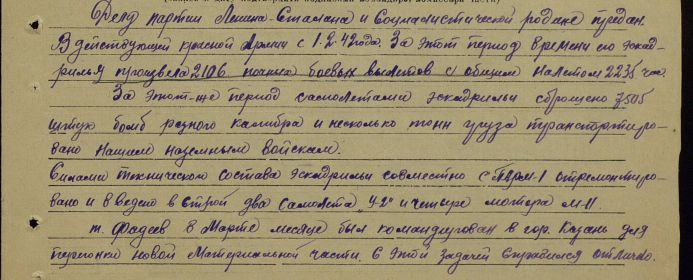 Делу партии Ленина-Сталина и Социалистической родине предан.
В действующей красной Армии с 1.2.42 года. За этот период времени его эскад-
рилья произвела 2106 ночных боевых вылетов с общим налетом 2235 час.
За этот-же период самолетами эскадрильи сброшено 7505
штук бомб разного калибра и несколько тонн груза транспортиро-
вано нашим наземным войскам.
Силами технического состава эскадрильи совместно с ПАРМ-1 отремонтиро-
вано и введено в строй два самолета "У-2" и четыре мотора М-11
т. Фадеев в Марте месяце был командирован в гор. Казань для
перегонки новой Материальной части. С этой задачей справился отлично.